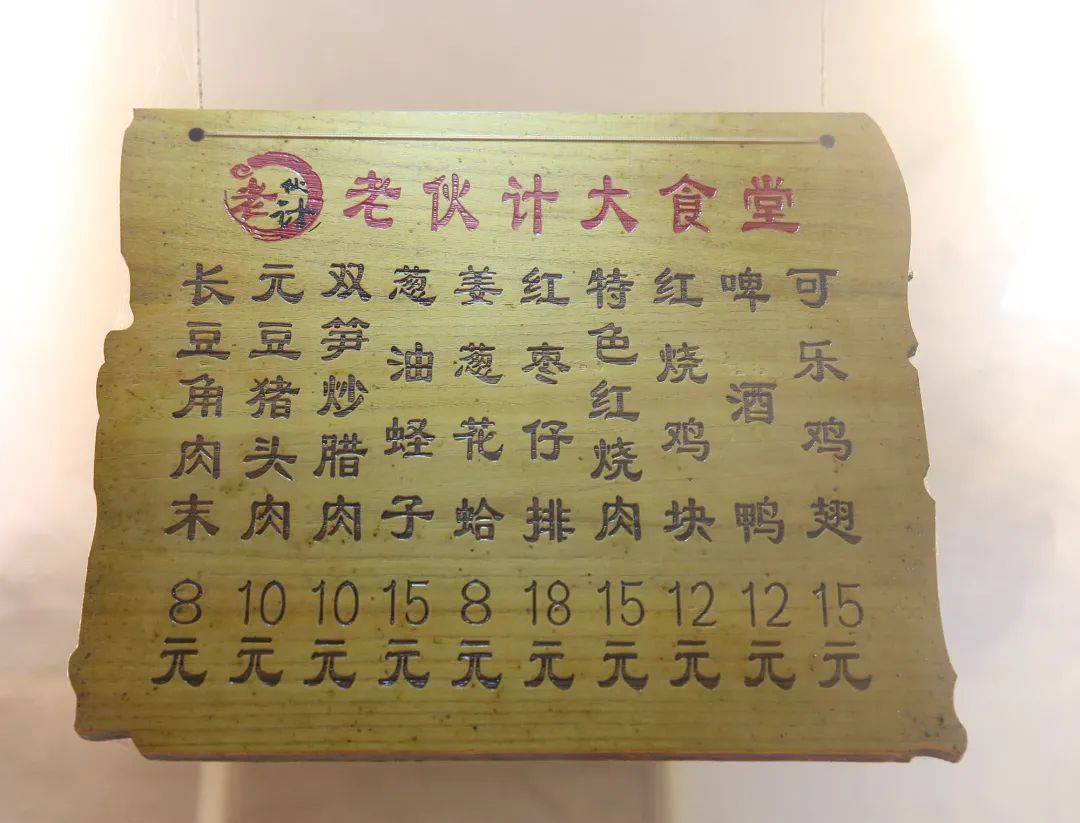 老伙计
老伙计大食堂
可乐鸡翅15元
啤酒鸭12元
红烧鸡块12元
特色红烧肉15元
红枣仔排18元
姜葱花蛤8元
葱油蛏子15元
双笋炒腊肉10元
元豆猪头肉10元
长豆角肉末8元